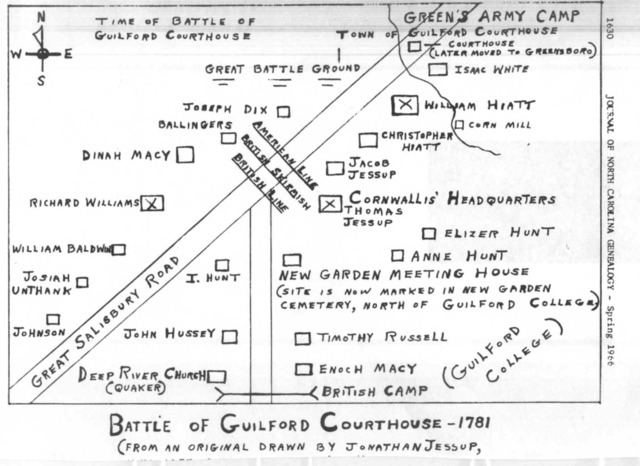 GREEN'S ARMY CAMP
TIME OF BATTLE OF
GUILFORD COURTHOUSE
TOWN OF GUILFORD COURTHOUSE
COURTHOUSE
(LATER MOVED TO GREENSBORO)
N
W
E
S
ISAAC WHITE
GREAT BATTLE GROUND
JOSEPH DIX
WILLIAM HIATT
BALLINGERS
CORN MILL
CHRISTOPHER
HIATT
AMERICAN LINE
BRITISH SKIRMISH
BRITISH LINE
DINAH MACY
JACOB
JESSUP
RICHARD WILLIAMS
CORNWALLIS' HEADQUARTERS
THOMAS
JESSUP
ELIZER HUNT
WILLIAM BALDWIN
ANNE HUNT
I. HUNT
NEW GARDEN MEETING HOUSE
(SITE IS NOW MARKED IN NEW GARDEN
CEMETERY, NORTH OF GUILFORD COLLEGE)
JOSIAH
UNTHANK
GREAT SALISBURY ROAD
JOHNSON
JOHN HUSSEY
TIMOTHY RUSSELL
(GUILFORD
COLLEGE)
DEEP RIVER CHURCH
(QUAKER)
ENOCH MACY
BRITISH CAMP
BATTLE OF GUILFORD COURTHOUSE-1781
(FROM AN ORIGINAL DRAWN BY JONATHAN JESSUP,
1630
JOURNAL OF NORTH CAROLINA GENEALOGY - Spring 1966